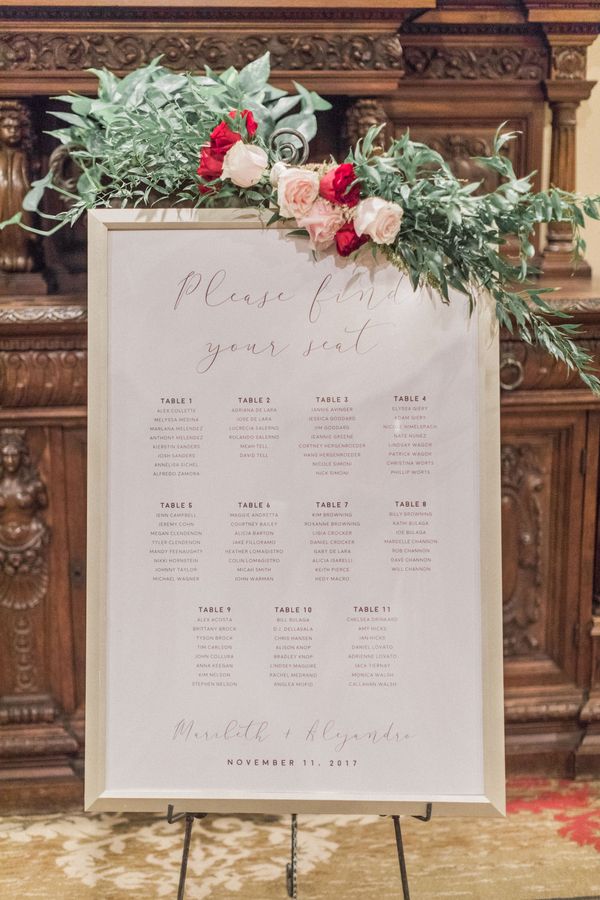 Please find
your seat
TABLE 1
ALEX COLLETTE
MELYSSA MEDINA
MARLANA MELENDEZ
ANTHONY MELENDEZ
KIERSTIN SANDERS
JOSH SANDERS
ANNELISA SICHEL
ALFREDO ZAMORA
TABLE 2
ADRIANA DE LARA
JOSE DE LARA
LUCRECIA SALERNO
ROLANDO SALERNO
MEAH TELL
DAVID TELL
TABLE 3
JANNIS AVINGER
JESSICA GODDARD
JIM GODDARD
JEANNIE GREENE
CORTNEY HERGENROEDER
HANS HERGENROEDER
NICOLE SIMONI
NICK SIMONI
TABLE 4
ELYSSA GIERY
ADAM GIERY
NICOLE HIMELSPACH
NATE NUNEZ
LINDSAY WAGOR
PATRICK WAGOR
CHRISTINA WORTS
PHILLIP WORTS
TABLE 5
JENN CAMPBELL
JEREMY COHN
MEGAN CLENDENON
TYLER CLENDENON
MANDY FEENAUGHTY
NIKKI HORNSTEIN
JOHNNY TAYLOR
MICHAEL WAGNER
TABLE 6
MAGGIE ANDRETTA
COURTNEY BAILEY
ALICIA BARTON
JAKE FILLORAMO
HEATHER LOMAGISTRO
COLIN LOMAGISTRO
MICAH SMITH
JOHN WARMAN
TABLE 7
KIM BROWNING
ROXANNE BROWNING
LIBIA CROCKER
DANIEL CROCKER
GABY DE LARA
ALICIA ISABEL
KEITH PIERCE
HEDY MACRO
TABLE 8
BILLY BROWNING
KATHI BULAGA
JOE BULAGA
MARDELLE CHANNON
ROB CHANNON
DAVE CHANNON
WILL CHANNON
TABLE 9
ALEX ACOSTA
BRITTANY BROCK
TYSON BROCK
TIM CARLSON
JOHN COLLURA
ANNA KEEGAN
KIM NELSON
STEPHEN NELSON
TABLE 10
BILL BULAGA
D.J. DELLASALA
CHRIS HANSEN
ALISON KNOP
BRADLEY KNOP
LINDSEY MAGUIRE
RACHEL MEDRANO
ANGLEA MOPID
TABLE 11
CHELSEA DRINKARD
AMY HICKS
IAN HICKS
DANIEL LOVATO
ADRIENNE LOVATO
JACK TIERNAY
MONICA WALSH
CALLAHAN WALSH
Maribeth + Alejandro
NOVEMBER 11. 2017